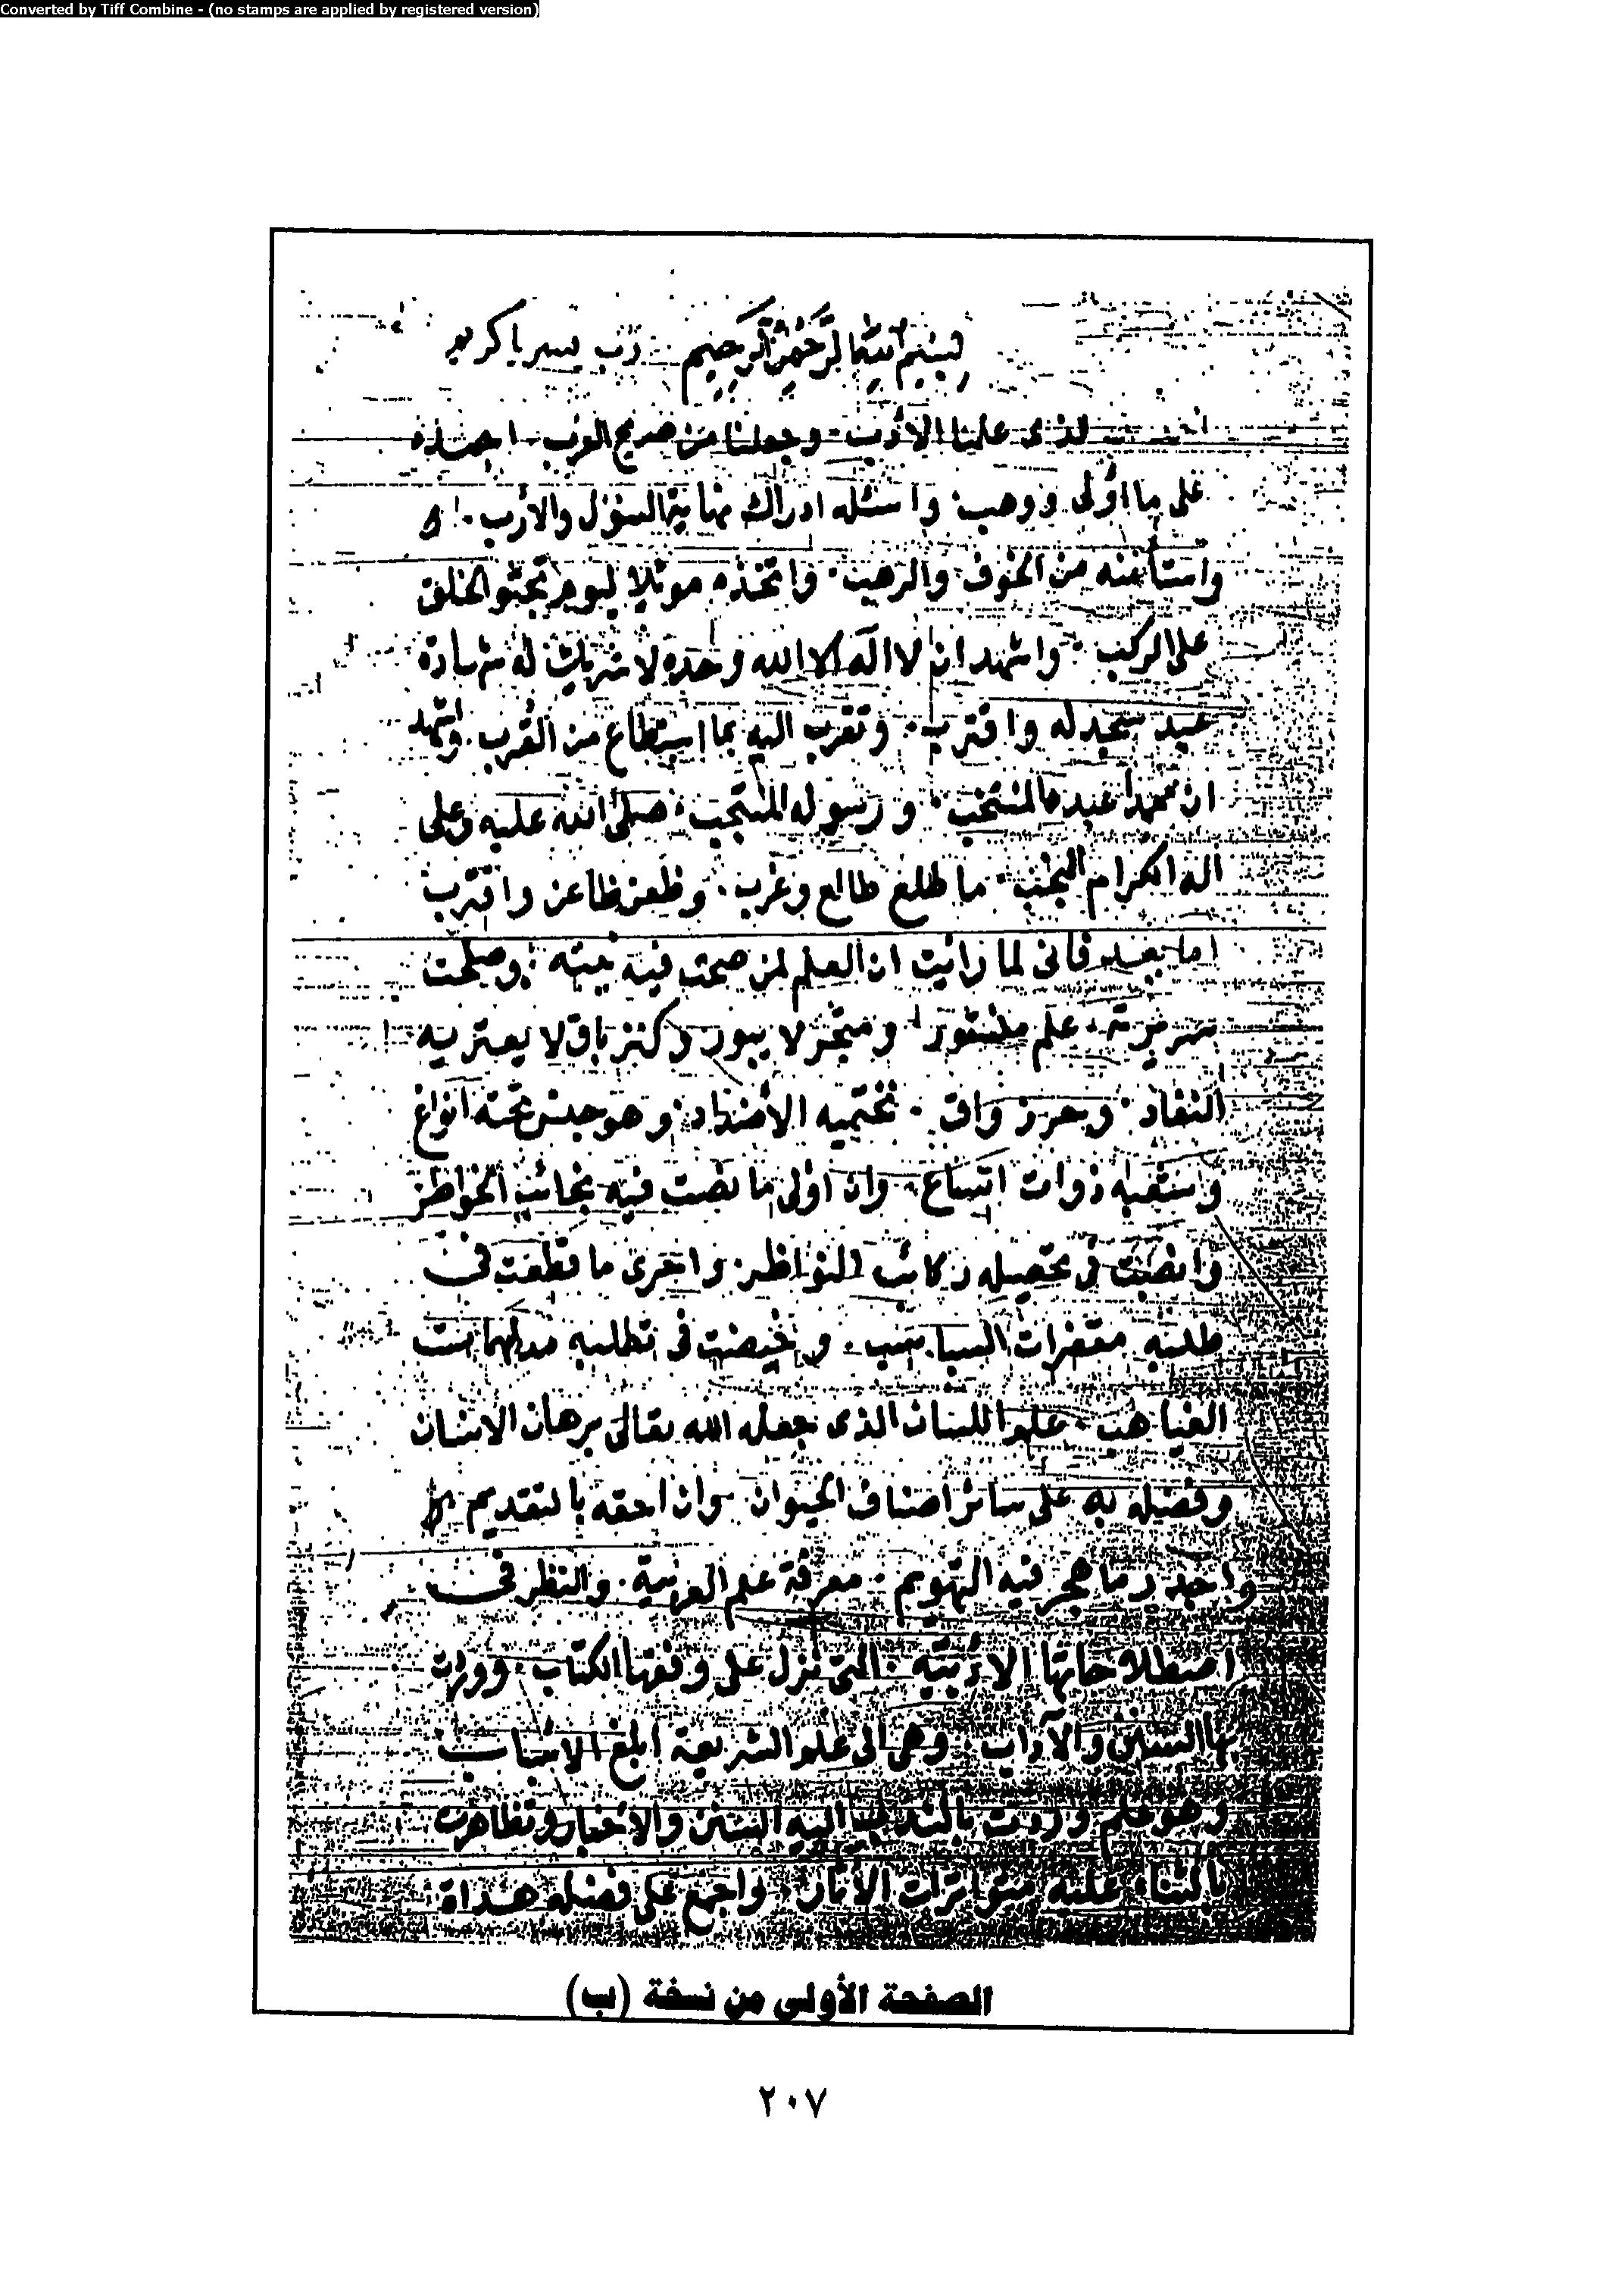 Converted by Tiff Combine - (no stamps are applied by registered version)
بسم الله الرحمن الرحيم رب يسر يا كريم
لذى علمنا الادب وجعلنا من صريح العرب احمده
على ما اولى ووهب واسئله ادراك نهاية السؤل والأرب
واستأمنه من الخوف والرهب واتخذه موئلا ليوم تجثو الخلق
على الركب واشهد ان لا اله الا الله وحده لا شريك له شهادة
عبد سجد له واقترب وتقرب اليه بما استطاع من القرب واشهد
ان محمدا عبده المنتخب ورسوله المنتجب صلى الله عليه وعلى
اله الكرام النجب ما طلع طالع وغرب وظعن ظاعن واقترب
اما بعد فانى لما رأيت ان العلم لمن صحت فيه نيته وصلحت
سريرته علم منشور ومتجر لا يبور وكنز باق لا يعتريه
النفاد وحرز واق تحتميه الاضداد وهو جنس تحته انواع
وشعبه ذوات اتساع وان اولى ما نضت فيه نجائب الخواطر
وانضيت فى تحصيله ركائب النواظر واحرى ما قطعت فى
طلبه مقفرات السباسب وخيضت فى تطلبه مدلهمات
الغياهب علم اللسان الذى جعله الله تعالى برهان الانسان
وفضله به على سائر اصناف الحيوان وان احقه بالتقديم
واجدر ما هجر فيه التهويم معرفة علم العربية والنظر فى
اصطلاحاتها الادبية التى نزل على وفقها الكتاب ووردت
بها السنن والآداب وهى الى علم الشريعة ابلغ الاسباب
وهو علم وردت بالندب اليه السنن والاخبار وتظاهرت
بالثناء عليه متواترات الآثار واجمع على فضله هداة
الصفحة الأولى من نسخة (ب)
٢٠٧